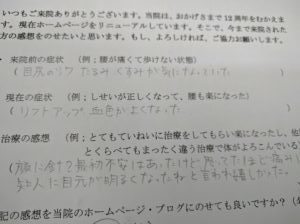 いつもご来院ありがとうございます。当院は、おかげさまで12周年をむかえます。
現在ホームページをリニューアルしています。そこで、今まで来院された
方の感想をのせたいと思います。もし、よろしければ、ご協力お願いします。
● 来院前の症状（例；腰が痛くて歩けない状態）
（目尻のシワ たるみ くすみが気になっていた
現在の症状（例；しせいが正しくなって、腰も楽になった）
（リフトアップ 血色がよくなった
治療の感想（例；とてもていねいに治療をしてもらい楽になったし、他
とくらべてもまったく違う治療で体がよろこんでいる
（顔に針？最初不安はあったけど思ってたほど痛み
知人に目元が明るくなったねと言われ嬉しかった。
記の感想を当院のホームページ・ブログにのせても良いですか？（